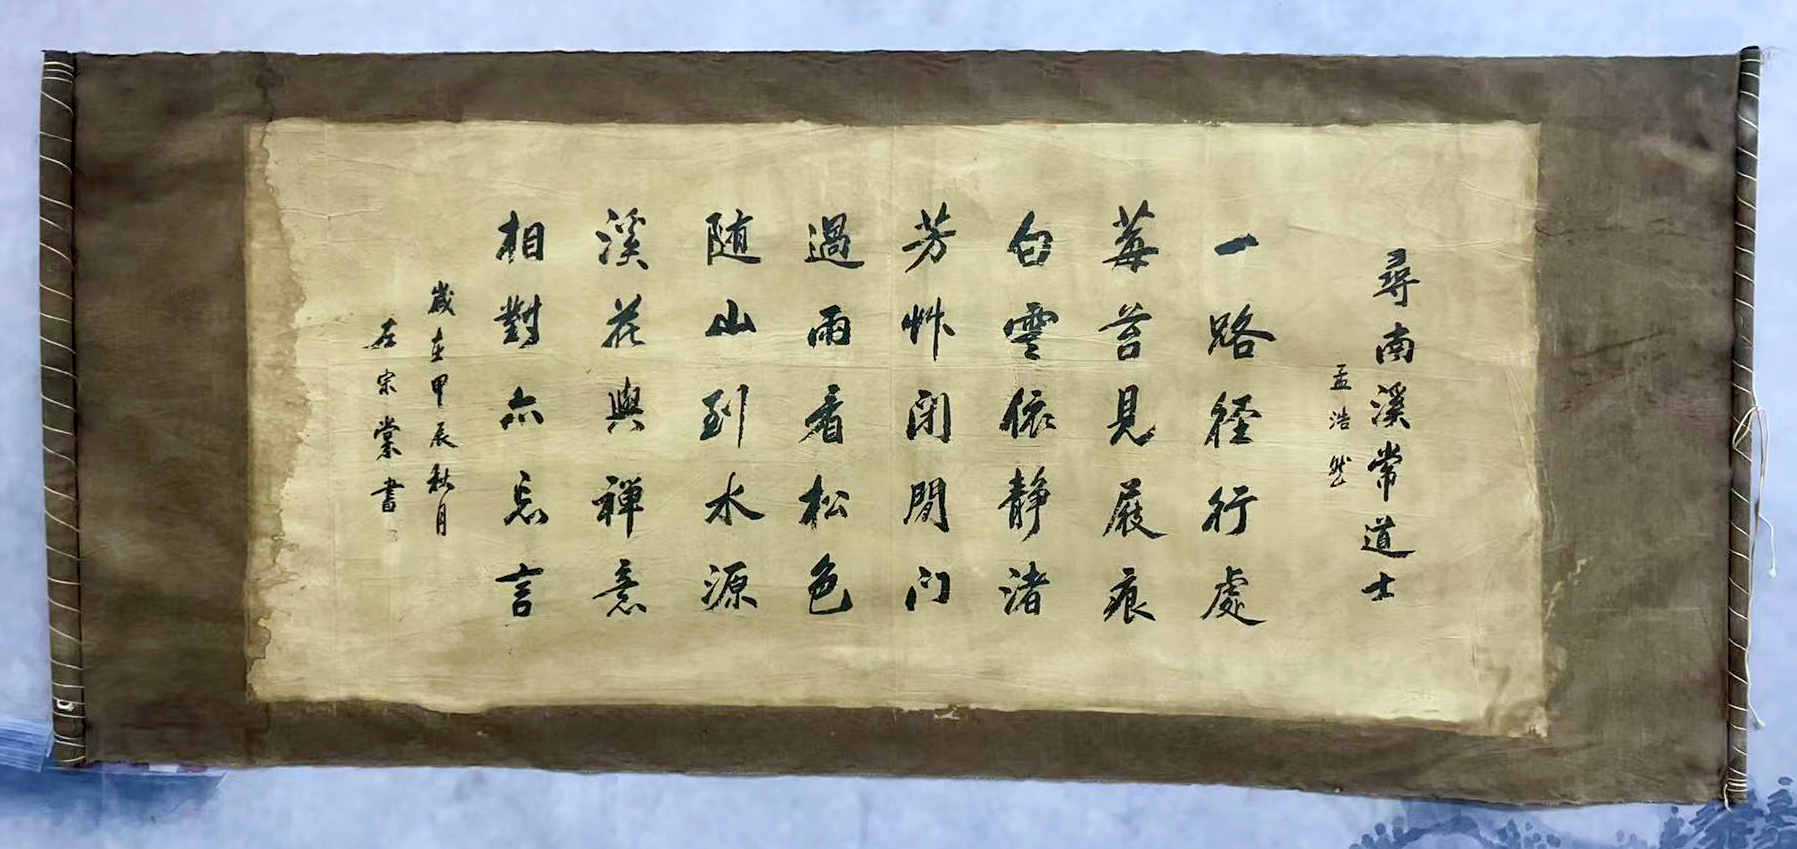 尋南溪常道士
孟浩然
一路徑行處
莓苔見屐痕
白雲依靜渚
芳艸閉閒门
過雨看松色
随山到水源
溪花與禅意
相對亦忘言
歲在甲辰秋月
左宗棠書